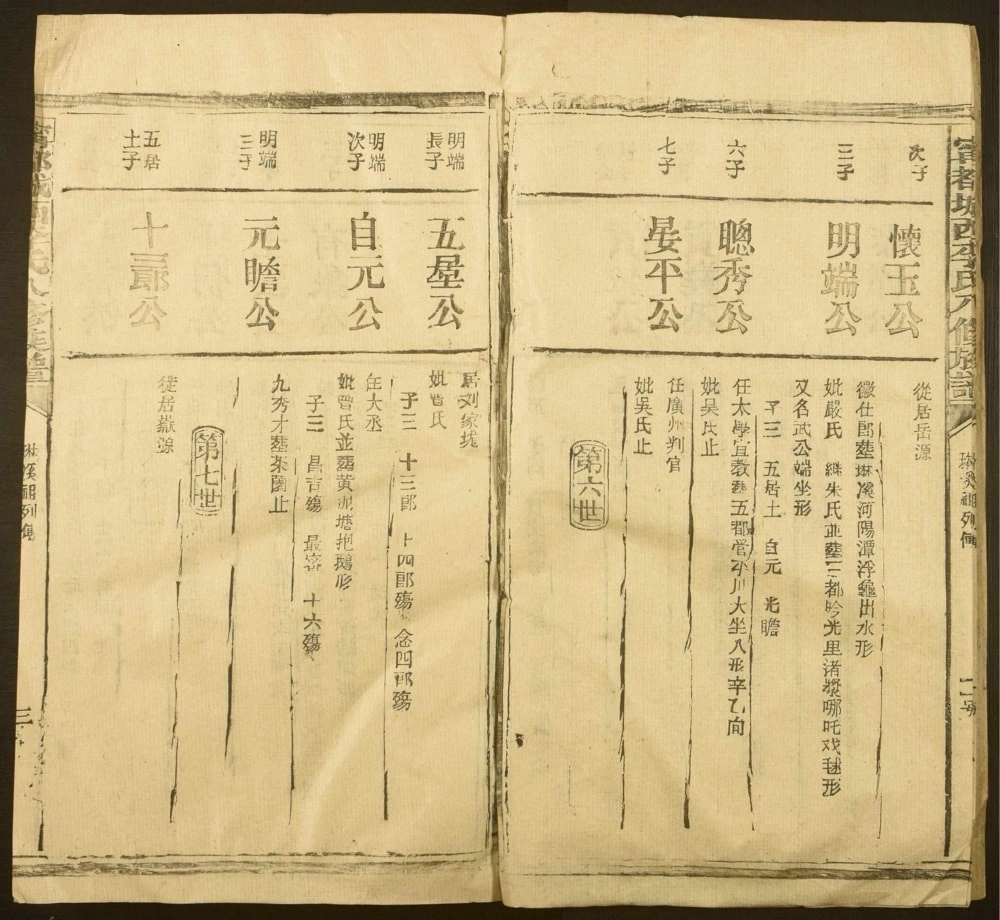 寧都城西李氏八修族譜
琳溪嗣列傳
次子
懷玉公
從居岳源
三子
明端公
徵仕郎葬琳溪河陽潭浮龜出水形
妣嚴氏 繼朱氏並葬三都吟光里渚槳哪吒戏毬形
又名武公端坐形
子三 五居士 自元 光瞻
六子
聰秀公
任太學宜教葬五都營平川大坐人形辛乙向
妣吴氏止
七子
晏平公
任廣州判官
妣吳氏止
第六世
明端長子
五星公
居刘家墟
妣曾氏
子三 十三郎 十四郎殤 念四郎殤
明端次子
自元公
任大丞
妣曾氏並葬黄泥塘抱鵝形
子三 昌吉殤 最富 十六殤
明端三子
元瞻公
九秀才葬茶園止
第七世
五居士子
十三郎公
徙居嶽源
寧都城西李氏八修族譜
琳溪嗣列傳
三